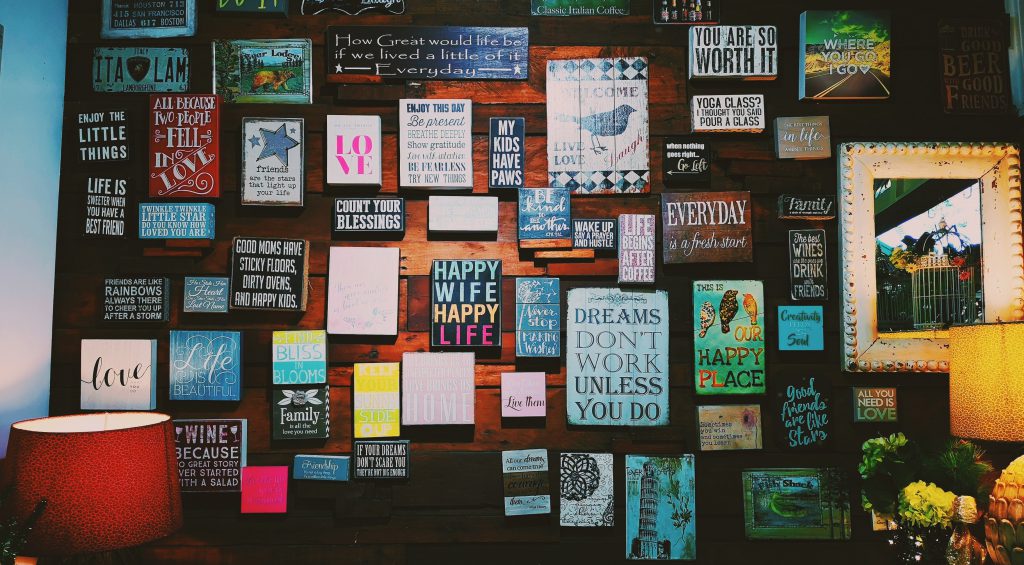 HOUSTON 713
SAN FRANCISCO 415
DALLAS 817 BOSTON 617
DO IT
Classic Italian Coffee
How Great would life be
if we lived a little of it
Everyday
YOU ARE SO
WORTH IT
WHERE
YOU GO
I GO
DRINK GOOD
BEER
GOOD
FRIENDS
ITALY
ITA LAM
LAMBORGHINI
ENJOY THE
LITTLE
THINGS
ALL BECAUSE
TWO PEOPLE
FELL
IN
LOVE
friends
are the stars
that light up
your life
LOVE
ENJOY THIS DAY
Be present
BREATHE DEEPLY
Show gratitude
BE FEARLESS
TRY NEW THINGS
MY
KIDS
HAVE
PAWS
WELCOME
LIVE
LOVE
Laugh
YOGA CLASS?
I THOUGHT YOU SAID
POUR A GLASS
when nothing
goes right..
Go Left
in life
LIFE IS
SWEETER WHEN
YOU HAVE A
BEST FRIEND
TWINKLE TWINKLE
LITTLE STAR
DO YOU KNOW HOW
LOVED YOU ARE
COUNT YOUR
BLESSINGS
BE
kind
TO ONE
another
WAKE UP
SAY A PRAYER
AND HUSTLE
LIFE
BEGINS
AFTER
COFFEE
EVERYDAY
is a fresh start
Family
GOOD MOMS HAVE
STICKY FLOORS,
DIRTY OVENS,
AND HAPPY KIDS
The best
WINES
are the ones we
DRINK
with
FRIENDS
FRIENDS ARE LIKE
RAINBOWS
ALWAYS THERE TO
CHEER YOU UP
AFTER A STORM
HAPPY
WIFE
HAPPY
LIFE
Never
stop
MAKING
Wishes
DREAMS
DON'T
WORK
UNLESS
YOU DO
THIS IS
OUR
HAPPY
PLACE
Creativity
FEEDS
the
Soul
love
Life
IS
BEAUTIFUL
BLISS
IN
BLOOMS
Family
is all the
love you need
KEEP
YOUR
SIDE
UP
LOVE BRINGS US
HOME
Live them
Sometimes
you win and
sometimes
you learn
Good
friends
are like
stars
ALL YOU
NEED IS
LOVE
WINE
BECAUSE
NO GREAT STORY
EVER STARTED
WITH A SALAD
Friendship
IF YOUR DREAMS
DON'T SCARE YOU
THEY'RE NOT BIG ENOUGH
All our dreams
can come true
if we have the
courage
Fish Shack